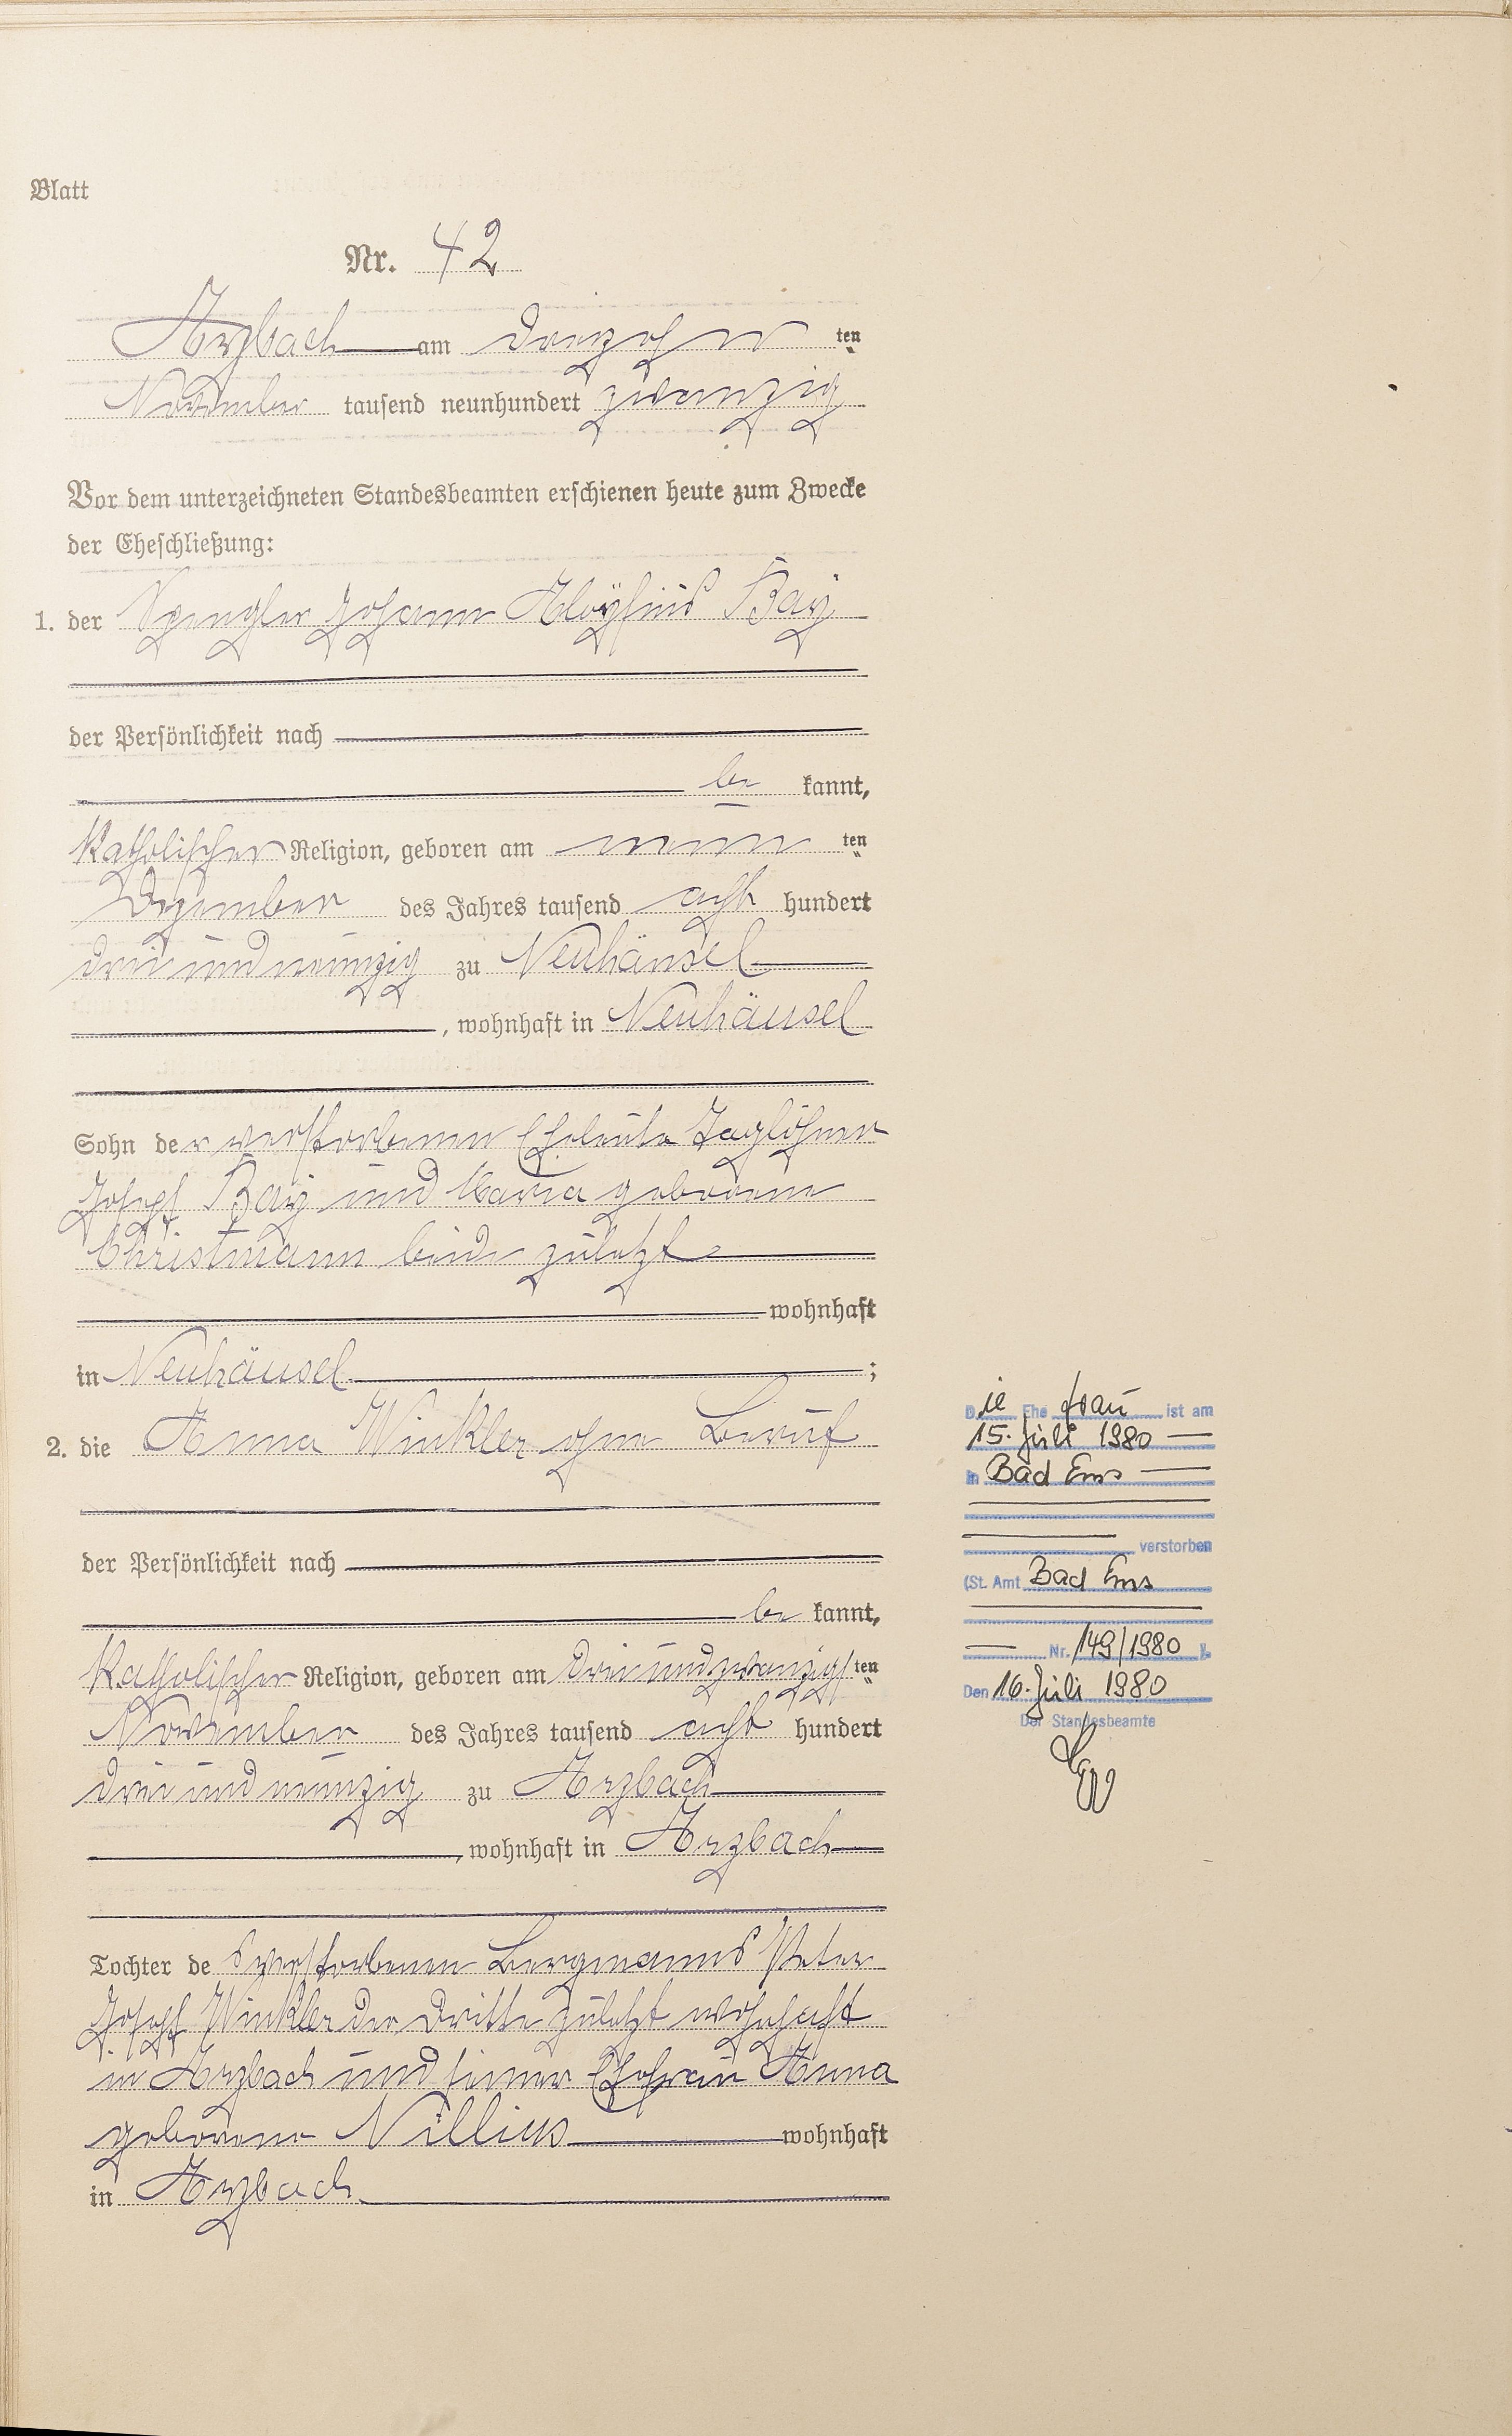 Blatt
Nr. 42
Arzbach am dreizehn ten
November tausend neunhundert zwanzig
Vor dem unterzeichneten Standesbeamten erschienen heute zum Zwecke
der Eheschließung:
1. der Spengler Johann Aloÿsius Baÿ
der Persönlichkeit nach
be kannt,
katholischer Religion, geboren am neun ten
Dezember des Jahres tausend acht hundert
drei und neunzig zu Neuhäusel
, wohnhaft in Neuhäusel
Sohn der verstorbenen Eheleute Taglöhner
Josef Baÿ und Maria geborene
Christmann beide zuletzt
wohnhaft
in Neuhäusel ;
2. die Anna Winkler ohne Beruf
der Persönlichkeit nach
be kannt,
katholischer Religion, geboren am drei und zwanzigs ten
November des Jahres tausend acht hundert
drei und neunzig zu Arzbach
, wohnhaft in Arzbach
Tochter des verstorbenen Bergmanns Peter
Josef Winkler der Dritte zuletzt wohnhaft
in Arzbach und seiner Ehefrau Anna
geborene Nillius wohnhaft
in Arzbach
Die Ehe frau ist am
15. Juli 1980
in Bad Ems
verstorben
(St. Amt Bad Ems
Nr. 149/1980 ).
Den 16. Juli 1980
Der Standesbeamte